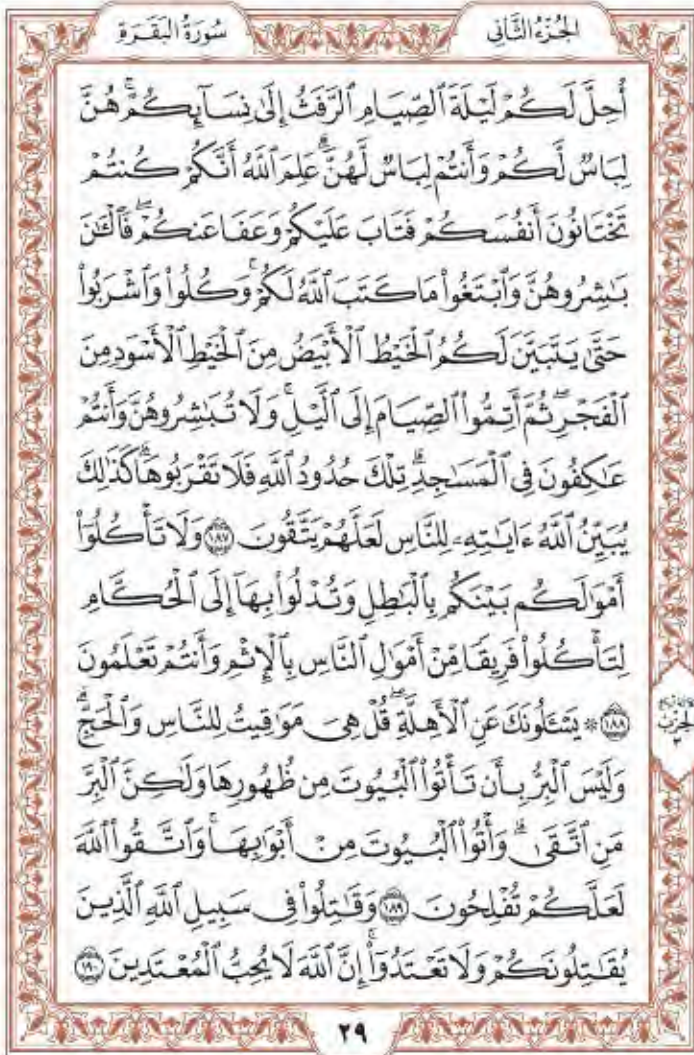 الجُزْءُ الثَّانِي سُورَةُ البَقَرَةِ
أُحِلَّ لَكُمْ لَيْلَةَ ٱلصِّيَامِ ٱلرَّفَثُ إِلَىٰ نِسَآئِكُمْۚ هُنَّ
لِبَاسٌ لَّكُمْ وَأَنتُمْ لِبَاسٌ لَّهُنَّۗ عَلِمَ ٱللَّهُ أَنَّكُمْ كُنتُمْ
تَخْتَانُونَ أَنفُسَكُمْ فَتَابَ عَلَيْكُمْ وَعَفَا عَنكُمْۖ فَٱلْـَٰٔنَ
بَـٰشِرُوهُنَّ وَٱبْتَغُوا۟ مَا كَتَبَ ٱللَّهُ لَكُمْۚ وَكُلُوا۟ وَٱشْرَبُوا۟
حَتَّىٰ يَتَبَيَّنَ لَكُمُ ٱلْخَيْطُ ٱلْأَبْيَضُ مِنَ ٱلْخَيْطِ ٱلْأَسْوَدِ مِنَ
ٱلْفَجْرِۖ ثُمَّ أَتِمُّوا۟ ٱلصِّيَامَ إِلَى ٱلَّيْلِۚ وَلَا تُبَـٰشِرُوهُنَّ وَأَنتُمْ
عَـٰكِفُونَ فِى ٱلْمَسَـٰجِدِۗ تِلْكَ حُدُودُ ٱللَّهِ فَلَا تَقْرَبُوهَاۗ كَذَٰلِكَ
يُبَيِّنُ ٱللَّهُ ءَايَـٰتِهِۦ لِلنَّاسِ لَعَلَّهُمْ يَتَّقُونَ ١٨٧ وَلَا تَأْكُلُوٓا۟
أَمْوَٰلَكُم بَيْنَكُم بِٱلْبَـٰطِلِ وَتُدْلُوا۟ بِهَآ إِلَى ٱلْحُكَّامِ
لِتَأْكُلُوا۟ فَرِيقًا مِّنْ أَمْوَٰلِ ٱلنَّاسِ بِٱلْإِثْمِ وَأَنتُمْ تَعْلَمُونَ
١٨٨ ۞ يَسْـَٔلُونَكَ عَنِ ٱلْأَهِلَّةِۖ قُلْ هِىَ مَوَٰقِيتُ لِلنَّاسِ وَٱلْحَجِّۗ
وَلَيْسَ ٱلْبِرُّ بِأَن تَأْتُوا۟ ٱلْبُيُوتَ مِن ظُهُورِهَا وَلَـٰكِنَّ ٱلْبِرَّ
مَنِ ٱتَّقَىٰۗ وَأْتُوا۟ ٱلْبُيُوتَ مِنْ أَبْوَٰبِهَاۚ وَٱتَّقُوا۟ ٱللَّهَ
لَعَلَّكُمْ تُفْلِحُونَ ١٨٩ وَقَـٰتِلُوا۟ فِى سَبِيلِ ٱللَّهِ ٱلَّذِينَ
يُقَـٰتِلُونَكُمْ وَلَا تَعْتَدُوٓا۟ۚ إِنَّ ٱللَّهَ لَا يُحِبُّ ٱلْمُعْتَدِينَ ١٩٠
الحزب
٣
٢٩